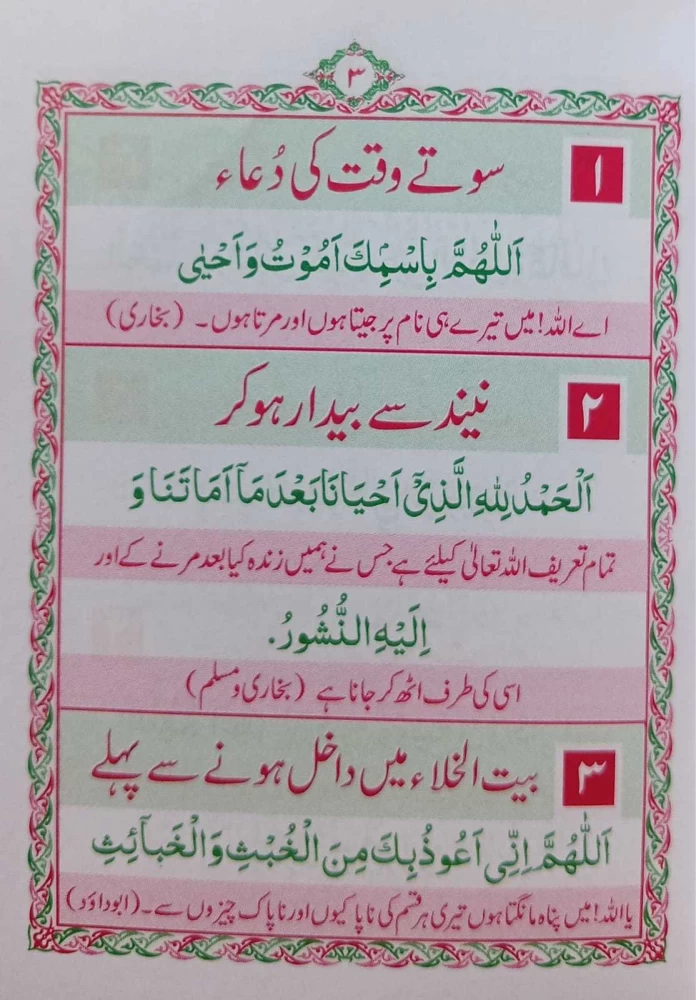 ۳
۱
سوتے وقت کی دُعاء
اَللّٰهُمَّ بِاسْمِكَ اَمُوْتُ وَاَحْيٰى
اے اللہ! میں تیرے ہی نام پر جیتا ہوں اور مرتا ہوں۔ (بخاری)
۲
نیند سے بیدار ہو کر
اَلْحَمْدُ لِلّٰهِ الَّذِىْٓ اَحْيَانَا بَعْدَ مَآ اَمَاتَنَا وَ
تمام تعریف اللہ تعالیٰ کیلئے ہے جس نے ہمیں زندہ کیا بعد مرنے کے اور
اِلَيْهِ النُّشُوْرُ.
اسی کی طرف اٹھ کر جانا ہے (بخاری و مسلم)
۳
بیت الخلاء میں داخل ہونے سے پہلے
اَللّٰهُمَّ اِنِّىْ اَعُوْذُ بِكَ مِنَ الْخُبْثِ وَالْخَبَآئِثِ
یا اللہ! میں پناہ مانگتا ہوں تیری ہر قسم کی ناپاکیوں اور ناپاک چیزوں سے۔ (ابوداؤد)